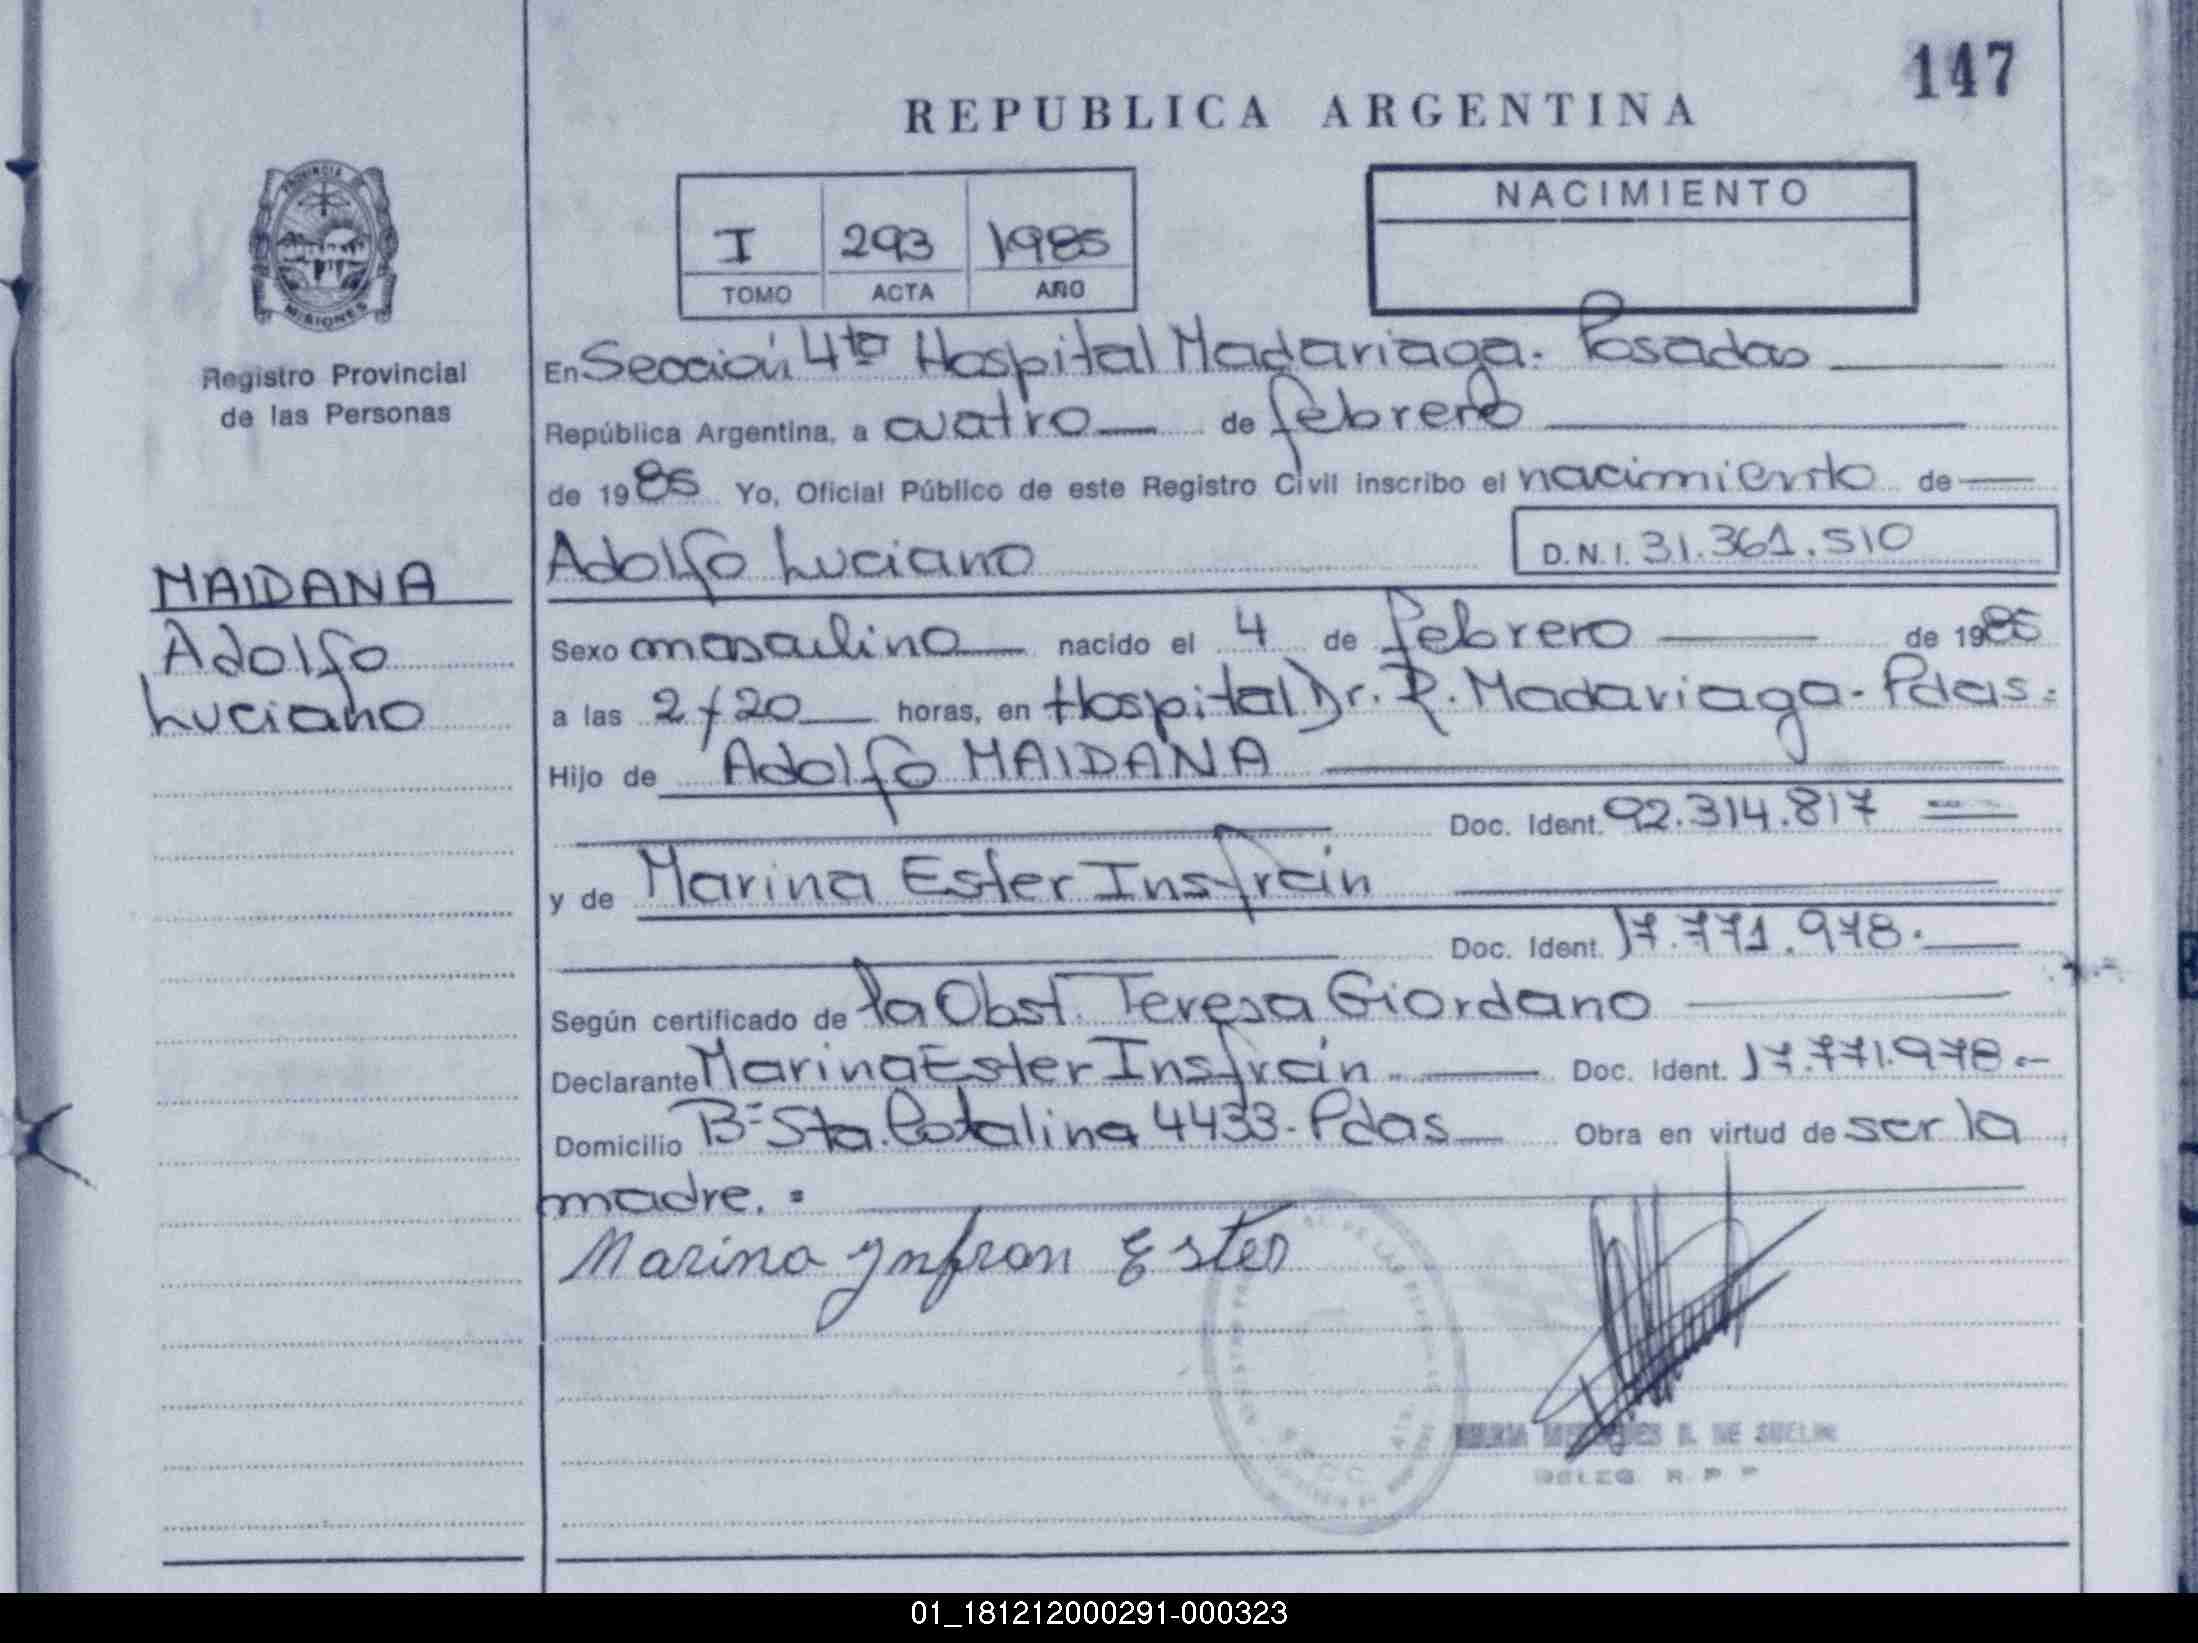 147
REPUBLICA ARGENTINA
PROVINCIA DE
MISIONES
Registro Provincial
de las Personas
I 293 1985
TOMO ACTA AÑO
NACIMIENTO
En Sección 4ta Hospital Madariaga. Posadas
República Argentina, a cuatro de febrero
de 1985 Yo, Oficial Público de este Registro Civil inscribo el nacimiento de
Adolfo Luciano D.N.I. 31.361.510
MAIDANA
Adolfo
Luciano
Sexo masculino nacido el 4 de febrero de 1985
a las 2/20 horas, en Hospital Dr. R. Madariaga - Pdas.
Hijo de Adolfo MAIDANA
Doc. Ident. 92.314.817
y de Marina Ester Insfrán
Doc. Ident. 17.771.978.
Según certificado de la Obst. Teresa Giordano
Declarante Marina Ester Insfrán Doc. Ident. 17.771.978.-
Domicilio Bº Sta. Catalina 4433 - Pdas Obra en virtud de ser la
madre.
Marina Ynfran Ester
DE LAS
DE SUELM
DELEG. R. P. P
01_181212000291-000323